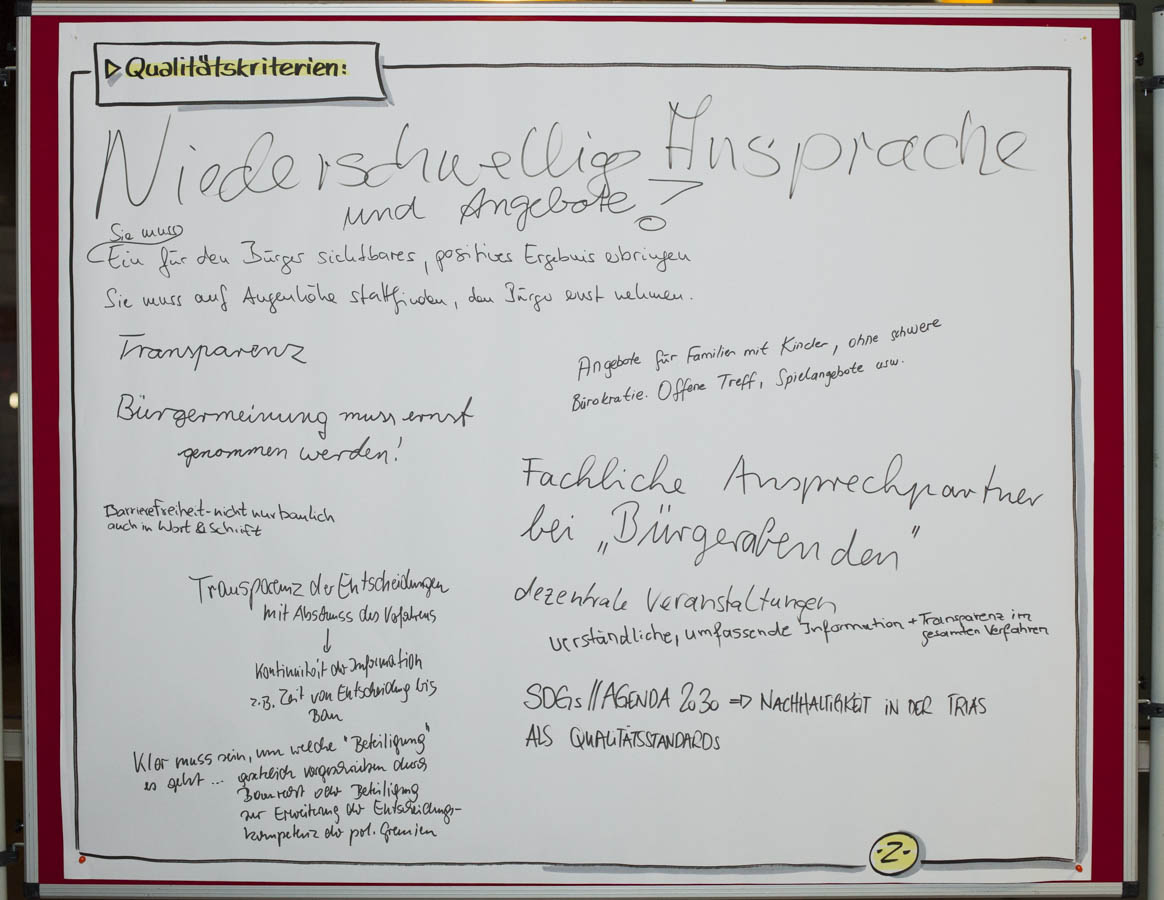 ▷ Qualitätskriterien:
Niederschwellige Ansprache
und Angebote?
Sie muss
Ein für den Bürger sichtbares, positives Ergebnis erbringen
Sie muss auf Augenhöhe stattfinden, den Bürger ernst nehmen.
Transparenz
Bürgermeinung muss ernst
genommen werden!
Barrierefreiheit - nicht nur baulich
auch in Wort & Schrift
Transparenz der Entscheidungen
mit Abschluss des Verfahrens
↓
Kontinuität der Information
z.B. Zeit von Entscheidung bis
Bau
Klar muss sein, um welche "Beteiligung"
es geht ... gesetzlich vorgeschrieben durch
Baurecht oder Beteiligung
zur Erweiterung der Entscheidungs-
kompetenz der pol. Gremien
Angebote für Familien mit Kinder, ohne schwere
Bürokratie. Offene Treff, Spielangebote usw.
Fachliche Ansprechpartner
bei „Bürgerabenden"
dezentrale Veranstaltungen
verständliche, umfassende Information + Transparenz im
gesamten Verfahren
SDGs // AGENDA 2030 ⇒ NACHHALTIGKEIT IN DER TRIAS
ALS QUALITÄTSSTANDARDS
-2-